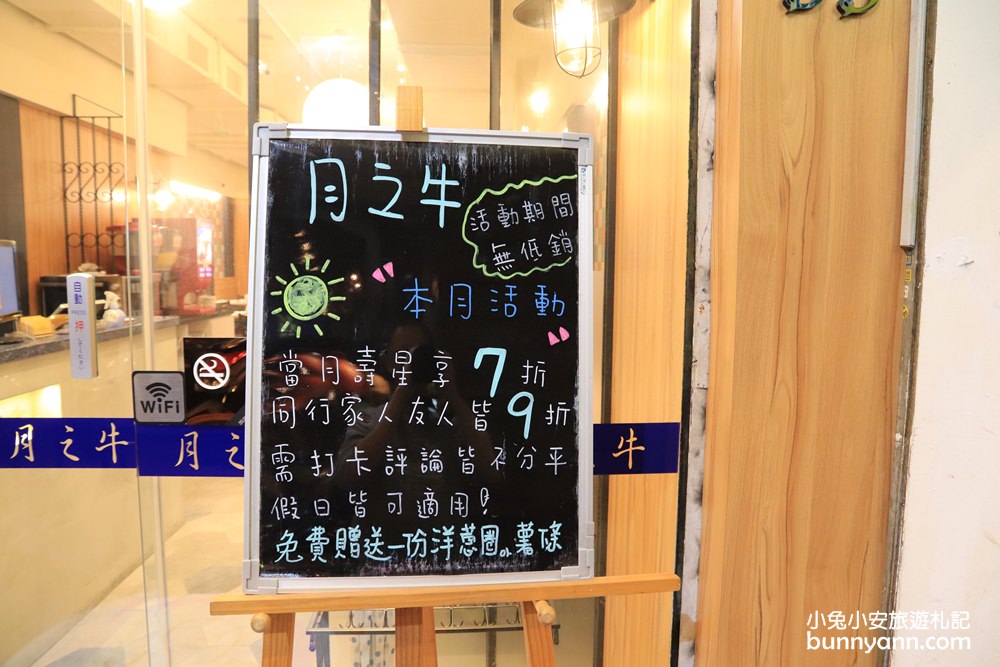 月之牛
活動期間
無低銷
本月活動
當月壽星享7折
同行家人友人皆9折
需打卡評論皆不分平
假日皆可適用!
免費贈送一份洋蔥圈or薯條
自動
押
してください
WiFi
月之牛
月之
牛
小兔小安旅遊札記
bunnyann.com